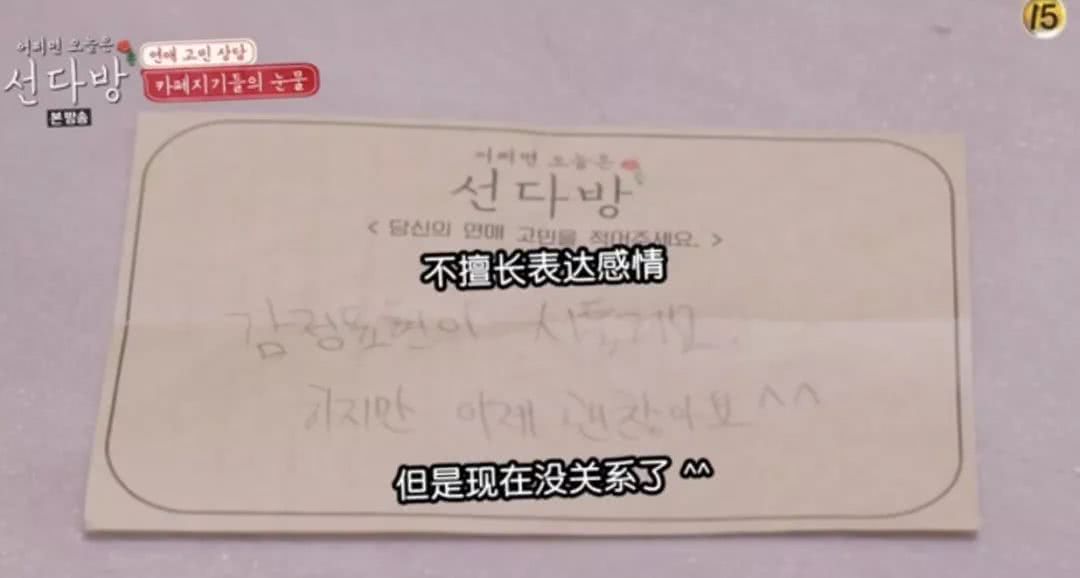 15
어쩌면 오늘은
선다방
본방송
연애 고민 상담
카페지기들의 눈물
어쩌면 오늘은
선다방
< 당신의 연애 고민을 적어주세요. >
不擅长表达感情
감정표현이 서툴러요.
하지만 이제 괜찮아요 ^^
但是现在没关系了 ^^